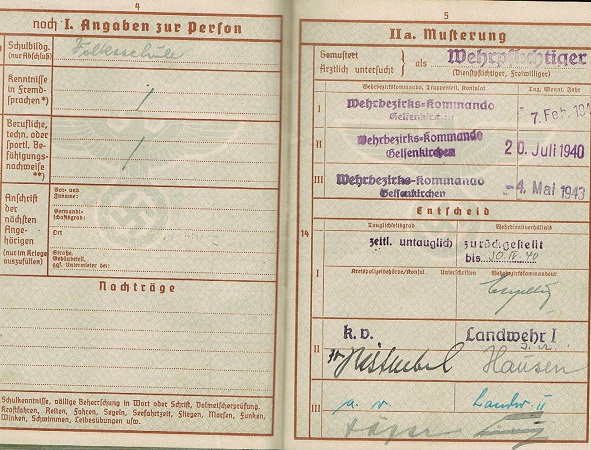 4
noch I. Angaben zur Person
Schulbildg. (nur Abschluß)
Volksschule
Kenntnisse
in Fremd-
sprachen*)
/
Berufliche,
techn. oder
sportl. Be-
fähigungs-
nachweise
**)
/
Anschrift
der
nächsten
Ange-
hörigen
(nur im Kriege
auszufüllen)
Vor- und
Zuname:
Verwandt-
schaftsgrad:
Ort
Straße,
Gebäudeteil,
ggf. Untermieter bei:
Nachträge
Schulkenntnisse, völlige Beherrschung in Wort oder Schrift, Dolmetscherprüfung.
Kraftfahren, Reiten, Fahren, Segeln, Seefahrtzeit, Fliegen, Morsen, Funken,
Winken, Schwimmen, Leibesübungen usw.
5
IIa. Musterung
Gemustert
Ärztlich untersucht
als Wehrpflichtiger
(Dienstpflichtiger, Freiwilliger)
Wehrbezirkskommando, Truppenteil, Konsulat
Tag, Monat, Jahr
I
Wehrbezirks-Kommando
Gelsenkirchen
7. Feb. 194
II
Wehrbezirks-Kommando
Gelsenkirchen
20. Juli 1940
III
Wehrbezirks-Kommando
Gelsenkirchen
-4. Mai 1943
14
Entscheid
Tauglichkeitsgrad
Wehrdienstverhältnis
I
zeitl. untauglich
zurückgestellt
bis
Kreispolizeibehörde/Konsul
Unterschriften
Wehrbezirkskommandeur
II
k. v.
Landwehr I
Hausen
III
a. v.
Landw. II